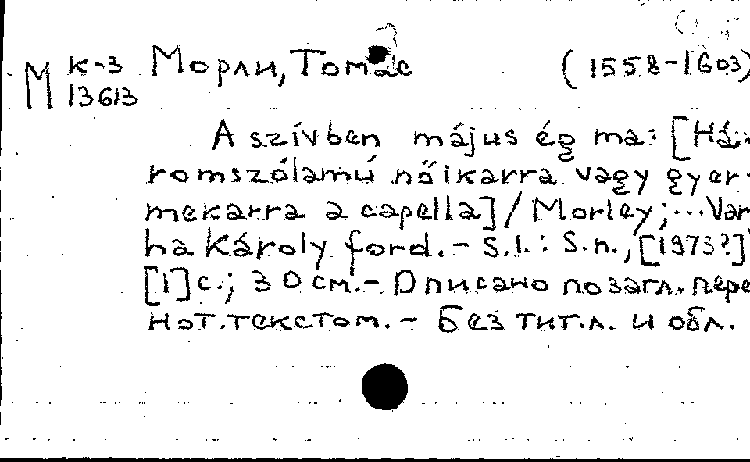 М К-3 Морли, Томас (1558-1603)
13613
A szívben május ég ma: [Há-
romszólamú nőikarra vagy gyer-
mekarra a capella] / Morley; ... Var
ha Károly ford. - S.l.: S.n., [1973?]
[1] с.; 30 см. - Описано по загл. пере
нот. текстом. - Без тит. л. и обл.